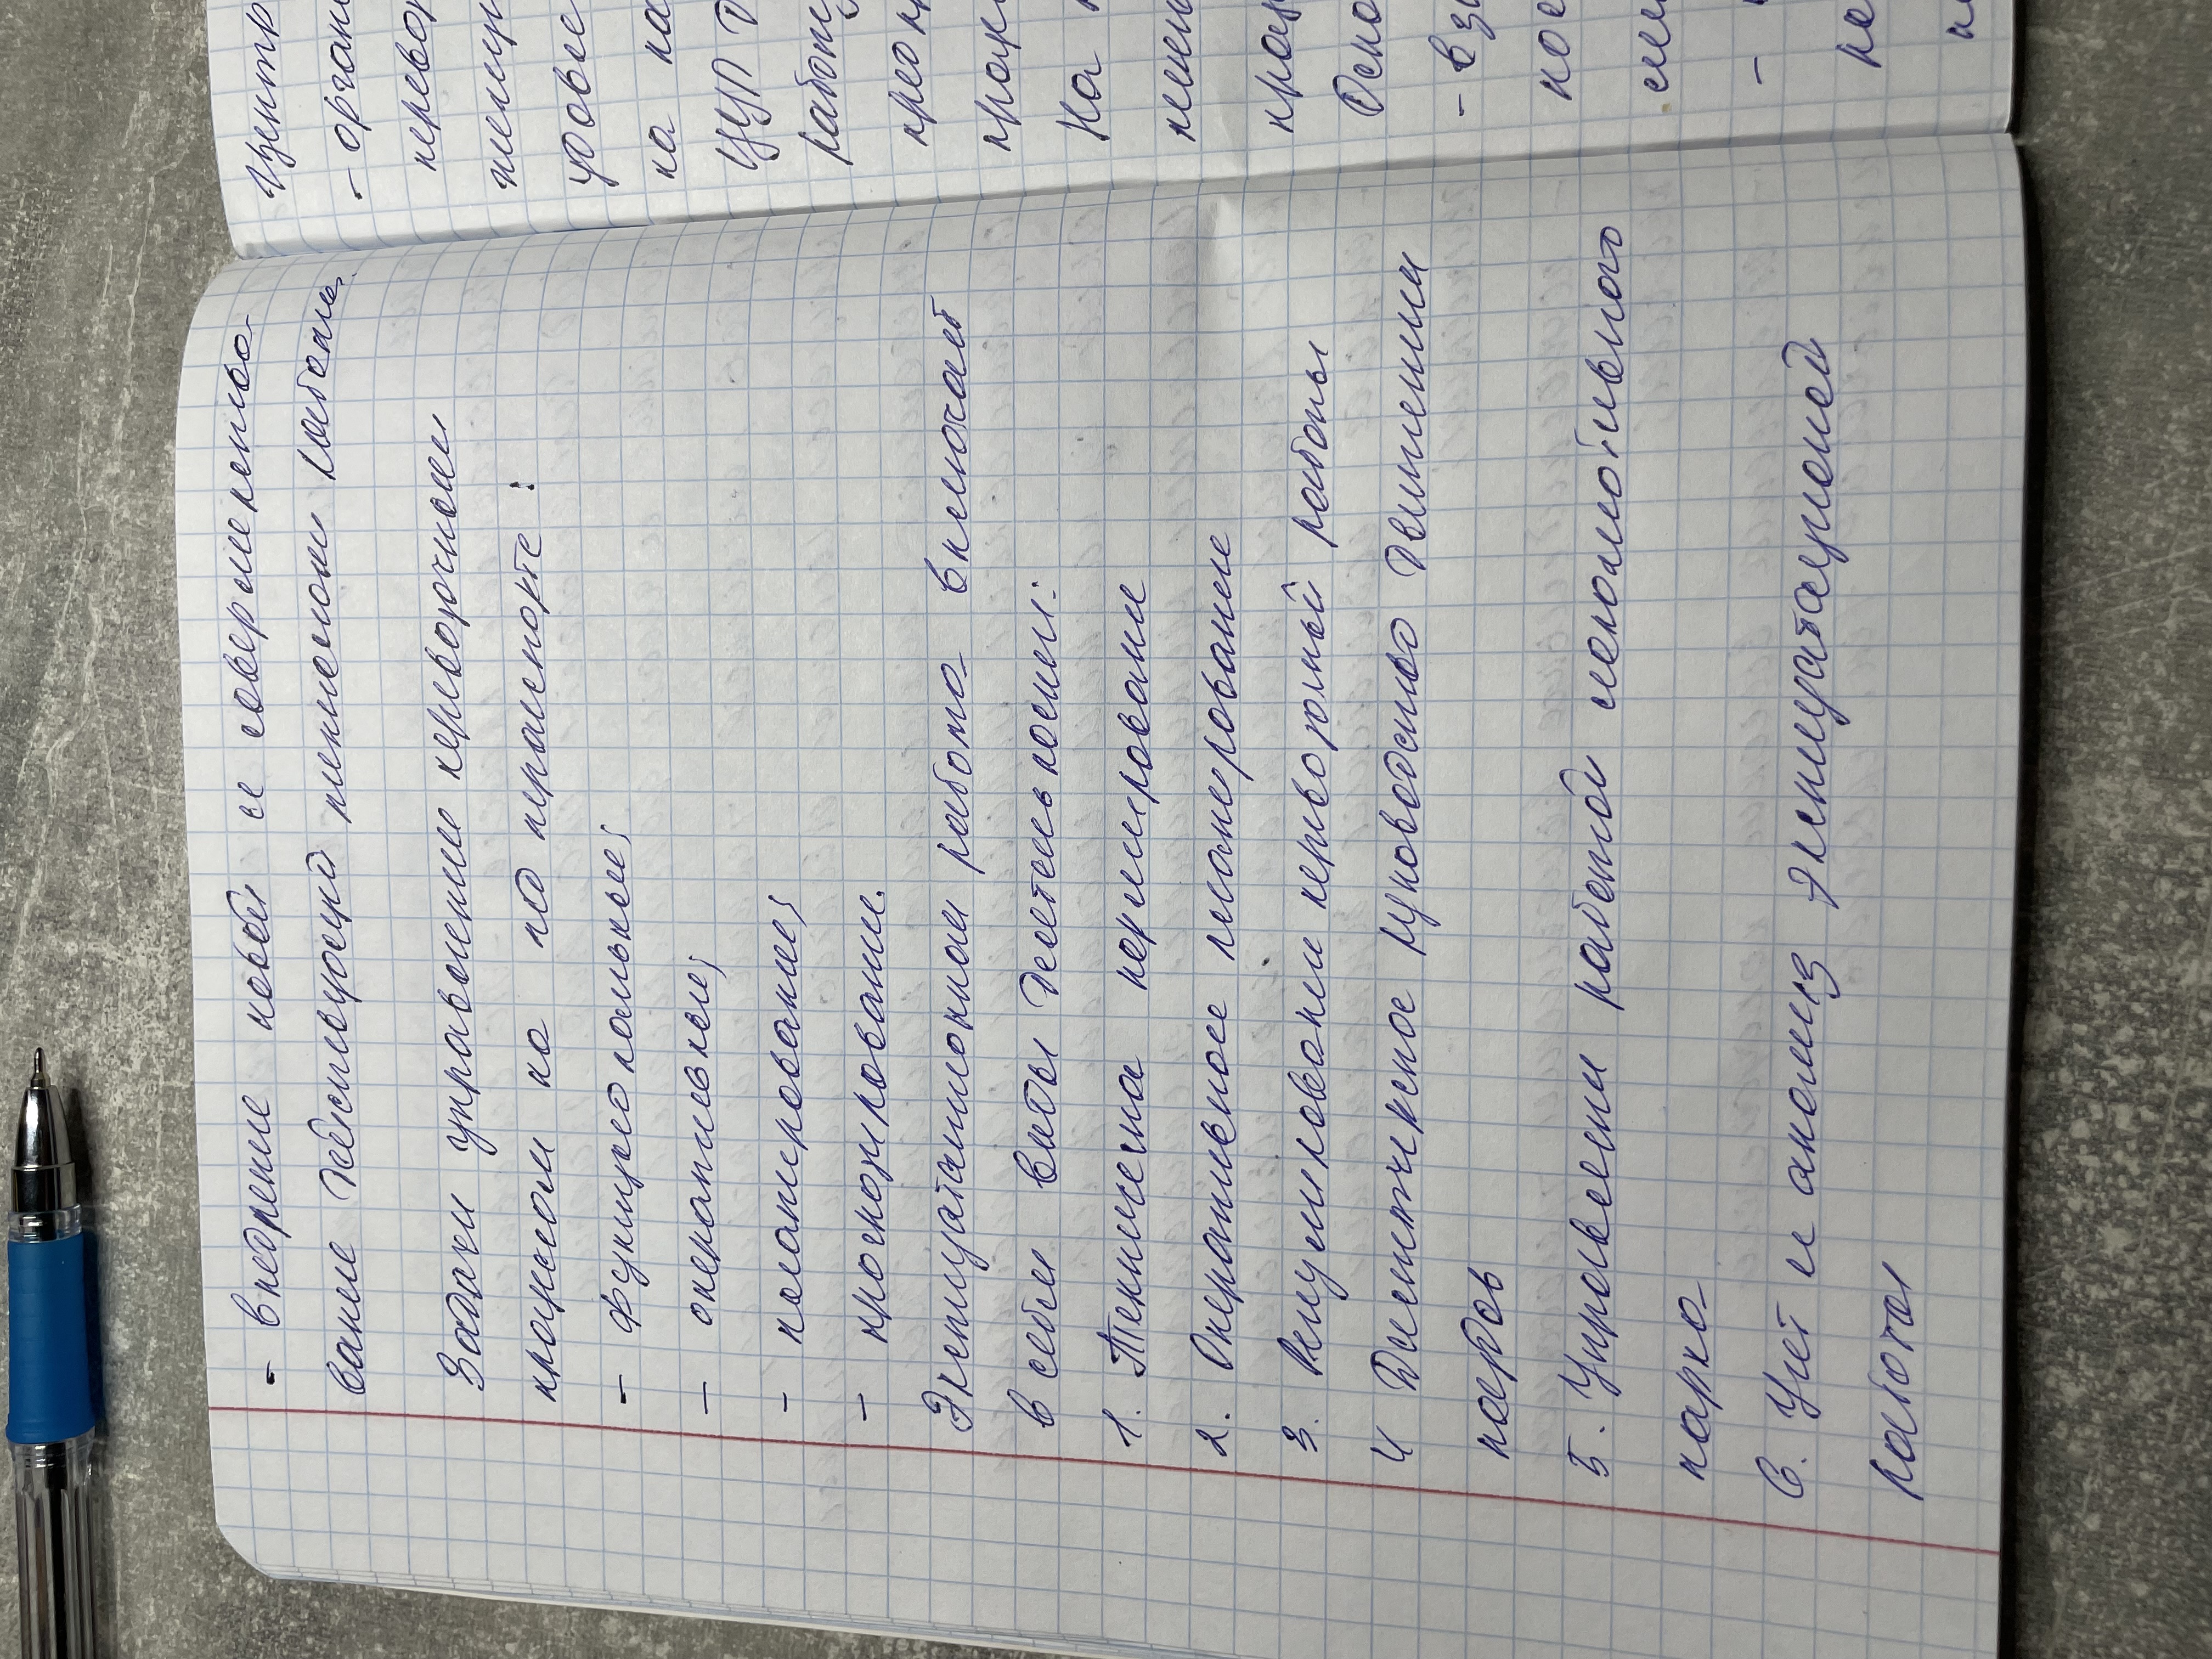 - внедрение новой и совершенство-
вание действующей техники работы.
Задачи управления перевозочным
процессом на ЖД транспорте:
- функциональные;
- оперативное;
- планирование;
- прогнозирование.
Эксплуатационная работа включает
в себя виды деятельности:
1. Техническое нормирование
2. Оперативное планирование
3. Регулирование перевозочной работы
4 Диспетчерское руководство движением
поездов
5. Управление работой локомотивного
парка
6. Учет и анализ эксплуатационной
работы
Центр
- орган
перевоз
на на
ЦУП Д
работ
На
Осно
- вз
ное